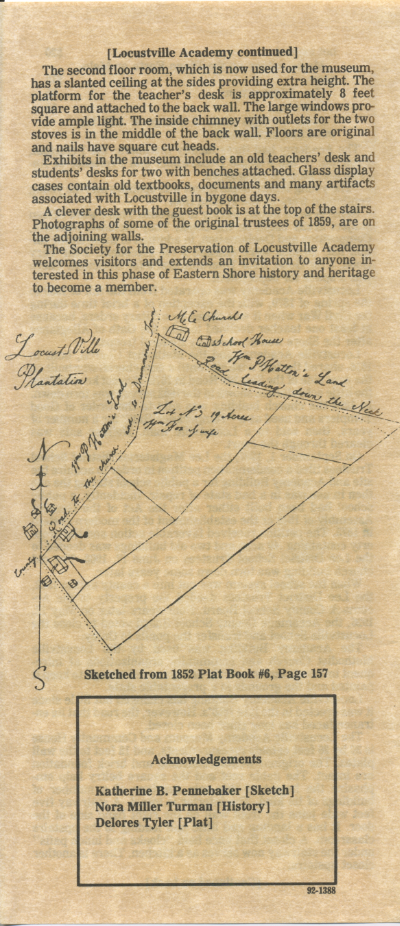 [Locustville Academy continued]
The second floor room, which is now used for the museum,
has a slanted ceiling at the sides providing extra height. The
platform for the teacher's desk is approximately 8 feet
square and attached to the back wall. The large windows pro-
vide ample light. The inside chimney with outlets for the two
stoves is in the middle of the back wall. Floors are original
and nails have square cut heads.
Exhibits in the museum include an old teachers' desk and
students' desks for two with benches attached. Glass display
cases contain old textbooks, documents and many artifacts
associated with Locustville in bygone days.
A clever desk with the guest book is at the top of the stairs.
Photographs of some of the original trustees of 1859, are on
the adjoining walls.
The Society for the Preservation of Locustville Academy
welcomes visitors and extends an invitation to anyone in-
terested in this phase of Eastern Shore history and heritage
to become a member.
M.E. Church
School House
LocustsVille
Plantation
Wm P Hatton's Land
Road leading down the Neck
Lot No 3 19 Acres
Wm P Hatton's Land
Road to the church and to Drummond Town
N
S
Sketched from 1852 Plat Book #6, Page 157
Acknowledgements
Katherine B. Pennebaker [Sketch]
Nora Miller Turman [History]
Delores Tyler [Plat]
92-1388